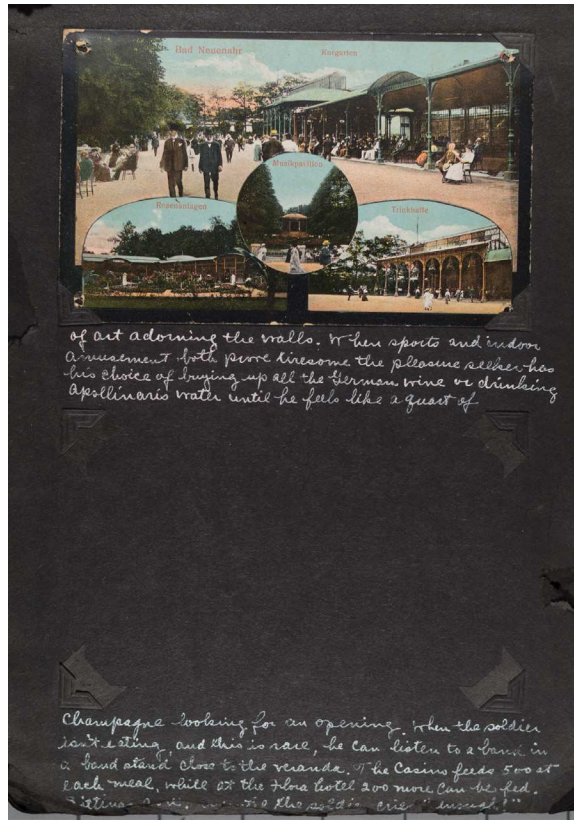 Bad Neuenahr Kurgarten
Musikpavillon
Rosenanlagen
Trinkhalle
of art adorning the walls. When sports and indoor
amusement both prove tiresome the pleasure seeker has
his choice of buying up all the German wine or drinking
Apollinaris water until he feels like a quart of
Champagne looking for an opening. When the soldier
isn't eating and this is rare, he can listen to a band in
a band stand close to the veranda. The Casino feeds 500 at
each meal, while at the Flora hotel 200 more can be fed.
the soldier cries "enough!"